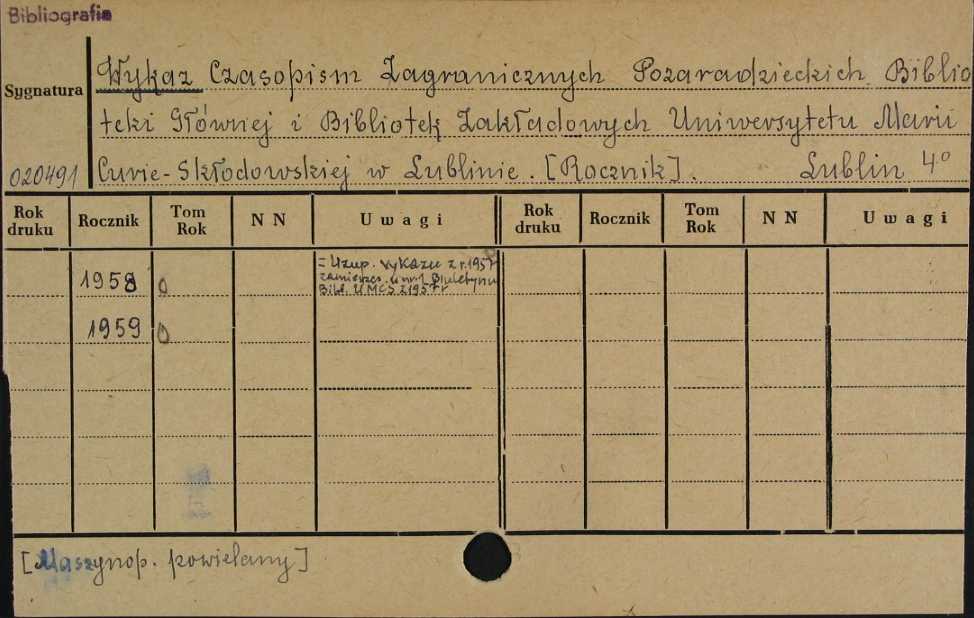 Bibliografie
Sygnatura
Wykaz Czasopism Zagranicznych Pozaradzieckich Biblio
teki Głównej i Bibliotek Zakładowych Uniwersytetu Marii
020491 Curie-Skłodowskiej w Lublinie. [Rocznik]. Lublin 4°
Rok druku Rocznik Tom Rok N N Uwagi Rok druku Rocznik Tom Rok N N Uwagi
1958 = Uzup. wykazu z r. 1957
zamieszcz. w nr 1 Biuletynu
Bibl. UMCS z 1957 r
1959
[Maszynop. powielany]